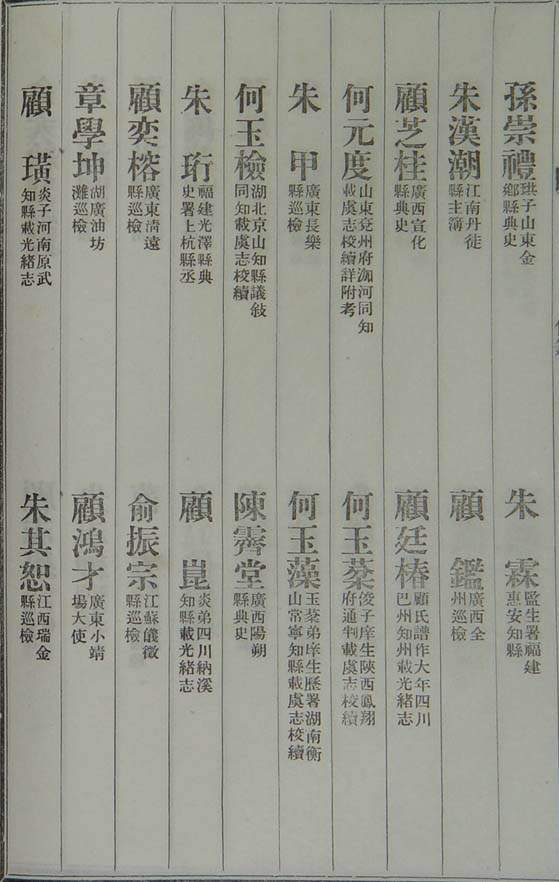 孫崇禮 珙子山東金鄉縣典史
朱霖 監生署福建惠安知縣
朱漢潮 江南丹徒縣主簿
顧鑑 廣西全州巡檢
顧芝桂 廣西宣化縣典史
顧廷椿 顧氏譜作大年四川巴州知州載光緒志
何元度 山東兗州府泇河同知載虞志校續詳附考
何玉棻 俊子庠生陝西鳳翔府通判載虞志校續
朱甲 廣東長樂縣巡檢
何玉藻 玉棻弟庠生歷署湖南衡山常寧知縣載虞志校續
何玉檢 湖北京山知縣議敍同知載虞志校續
陳霽堂 廣西陽朔縣典史
朱珩 福建光澤縣典史署上杭縣丞
顧崑 炎弟四川納溪知縣載光緒志
顧奕榕 廣東清遠縣巡檢
俞振宗 江蘇儀徵縣巡檢
章學坤 湖廣油坊灘巡檢
顧鴻才 廣東小靖場大使
顧璜 炎子河南原武知縣載光緒志
朱其恕 江西瑞金縣巡檢